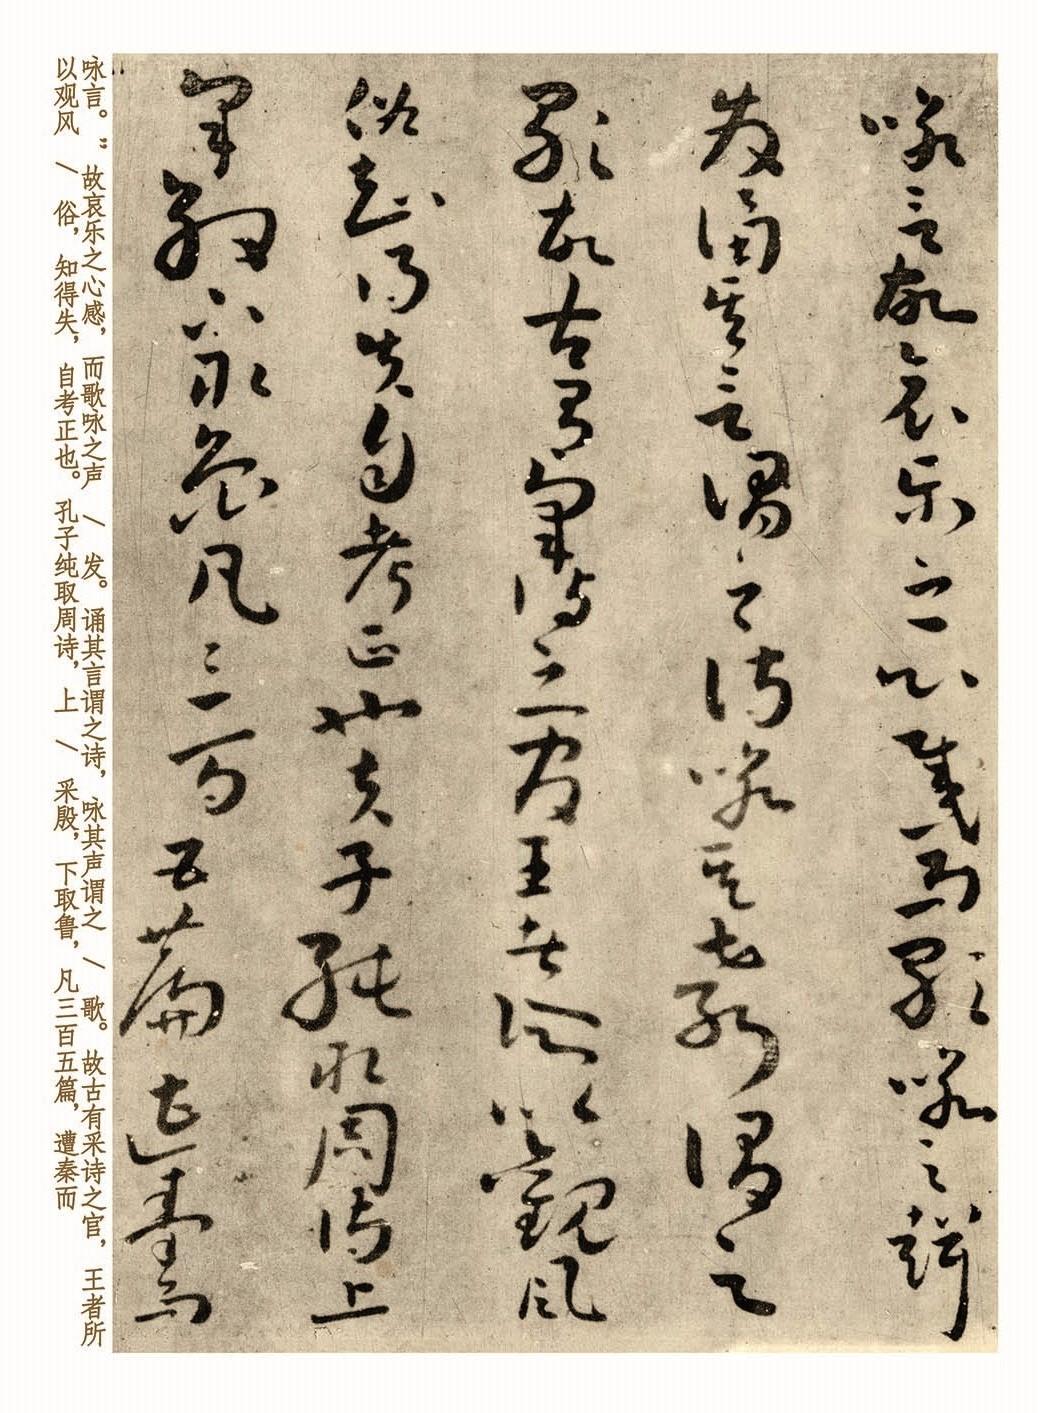 咏言故哀樂之心感而歌咏之聲
發誦其言謂之詩咏其聲謂之
歌故古有采詩之官王者所以觀風
俗知得失自考正也孔子純取周詩上
采殷下取魯凡三百五篇遭秦而
咏言。”故哀乐之心感，而歌咏之声 / 发。诵其言谓之诗，咏其声谓之 / 歌。故古有采诗之官，王者所
以观风 / 俗，知得失，自考正也。孔子纯取周诗，上 / 采殷，下取鲁，凡三百五篇，遭秦而